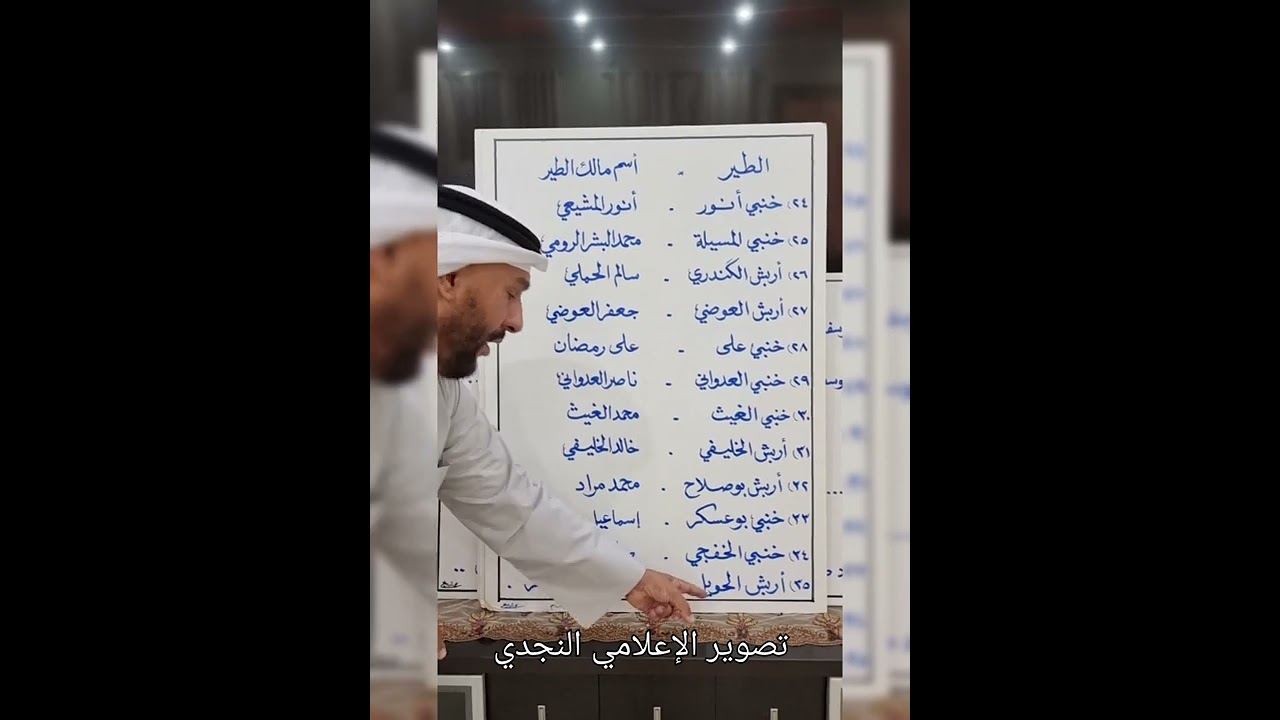 الطير - أسم مالك الطير
٢٤) خنبي أنور - أنور المشيعي
٢٥) خنبي المسيلة - محمد البشر الرومي
٢٦) أربش الگندري - سالم الحملي
٢٧) أربش العوضي - جعفر العوضي
٢٨) خنبي على - على رمضان
٢٩) خنبي العدواني - ناصر العدواني
٣٠) خنبي الغيث - محمد الغيث
٣١) أربش الخليفي - خالد الخليفي
٣٢) أربش بوصلاح - محمد مراد
٣٣) خنبي بوعسكر - إسماعيل
٣٤) خنبي الخفجي -
٣٥) أربش
تصوير الإعلامي النجدي